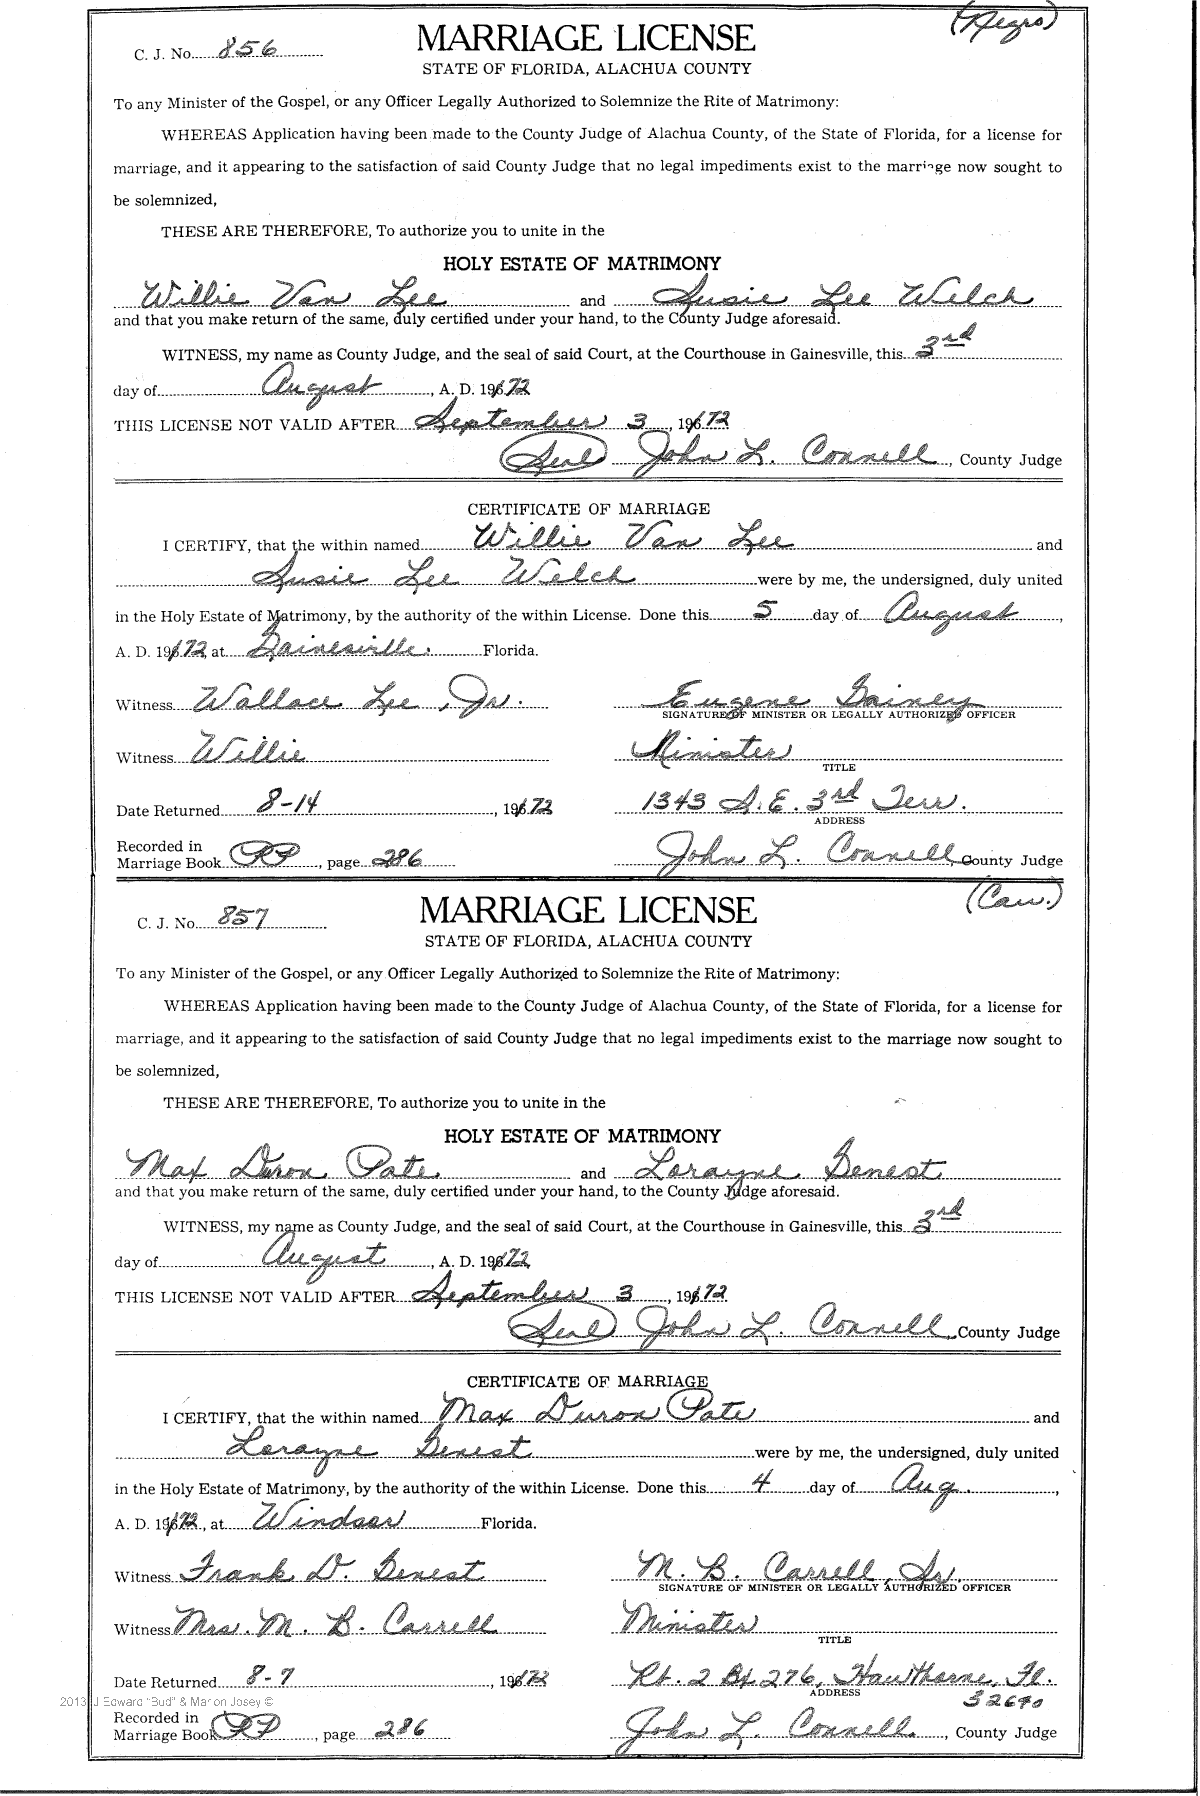 (Negro)
C. J. No. 856
MARRIAGE LICENSE
STATE OF FLORIDA, ALACHUA COUNTY
To any Minister of the Gospel, or any Officer Legally Authorized to Solemnize the Rite of Matrimony:
WHEREAS Application having been made to the County Judge of Alachua County, of the State of Florida, for a license for
marriage, and it appearing to the satisfaction of said County Judge that no legal impediments exist to the marriage now sought to
be solemnized,
THESE ARE THEREFORE, To authorize you to unite in the
HOLY ESTATE OF MATRIMONY
Willie Van Lee and Susie Lee Welch
and that you make return of the same, duly certified under your hand, to the County Judge aforesaid.
WITNESS, my name as County Judge, and the seal of said Court, at the Courthouse in Gainesville, this 3rd
day of August, A. D. 1972
THIS LICENSE NOT VALID AFTER September 3, 1972
(Seal) John L. Connell, County Judge
CERTIFICATE OF MARRIAGE
I CERTIFY, that the within named Willie Van Lee and
Susie Lee Welch were by me, the undersigned, duly united
in the Holy Estate of Matrimony, by the authority of the within License. Done this 5 day of August,
A. D. 1972, at Gainesville. Florida.
Witness Wallace Lee, Jr. Eugene Gainey
SIGNATURE OF MINISTER OR LEGALLY AUTHORIZED OFFICER
Witness Willie Minister
TITLE
Date Returned 8-14, 1972 1343 S.E. 3rd Terr.
ADDRESS
Recorded in
Marriage Book RP, page 286 John L. Connell, County Judge
(Cau.)
C. J. No. 857
MARRIAGE LICENSE
STATE OF FLORIDA, ALACHUA COUNTY
To any Minister of the Gospel, or any Officer Legally Authorized to Solemnize the Rite of Matrimony:
WHEREAS Application having been made to the County Judge of Alachua County, of the State of Florida, for a license for
marriage, and it appearing to the satisfaction of said County Judge that no legal impediments exist to the marriage now sought to
be solemnized,
THESE ARE THEREFORE, To authorize you to unite in the
HOLY ESTATE OF MATRIMONY
Max Duron Pate and Lorayne Genest
and that you make return of the same, duly certified under your hand, to the County Judge aforesaid.
WITNESS, my name as County Judge, and the seal of said Court, at the Courthouse in Gainesville, this 3rd
day of August, A. D. 1972
THIS LICENSE NOT VALID AFTER September 3, 1972
(Seal) John L. Connell, County Judge
CERTIFICATE OF MARRIAGE
I CERTIFY, that the within named Max Duron Pate and
Lorayne Genest were by me, the undersigned, duly united
in the Holy Estate of Matrimony, by the authority of the within License. Done this 4 day of Aug.,
A. D. 1972, at Windsor Florida.
Witness Frank D. Genest M. B. Carrell, Sr
SIGNATURE OF MINISTER OR LEGALLY AUTHORIZED OFFICER
Witness Mrs. M. B. Carrell Minister
TITLE
Date Returned 8-7, 1972 Rt. 2 Bx 276, Hawthorne, Fl.
ADDRESS 32640
2013 J Edward "Bud" & Marion Josey ©
Recorded in
Marriage Book RP, page 286 John L. Connell, County Judge